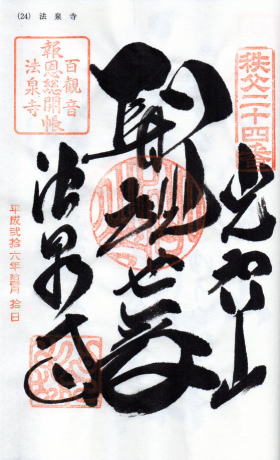 (24) 法泉寺
秩父二十四番
光智山
聖観世音
百觀音
報恩総開帳
法泉寺
法泉寺
平成弐拾六年 月 拾日